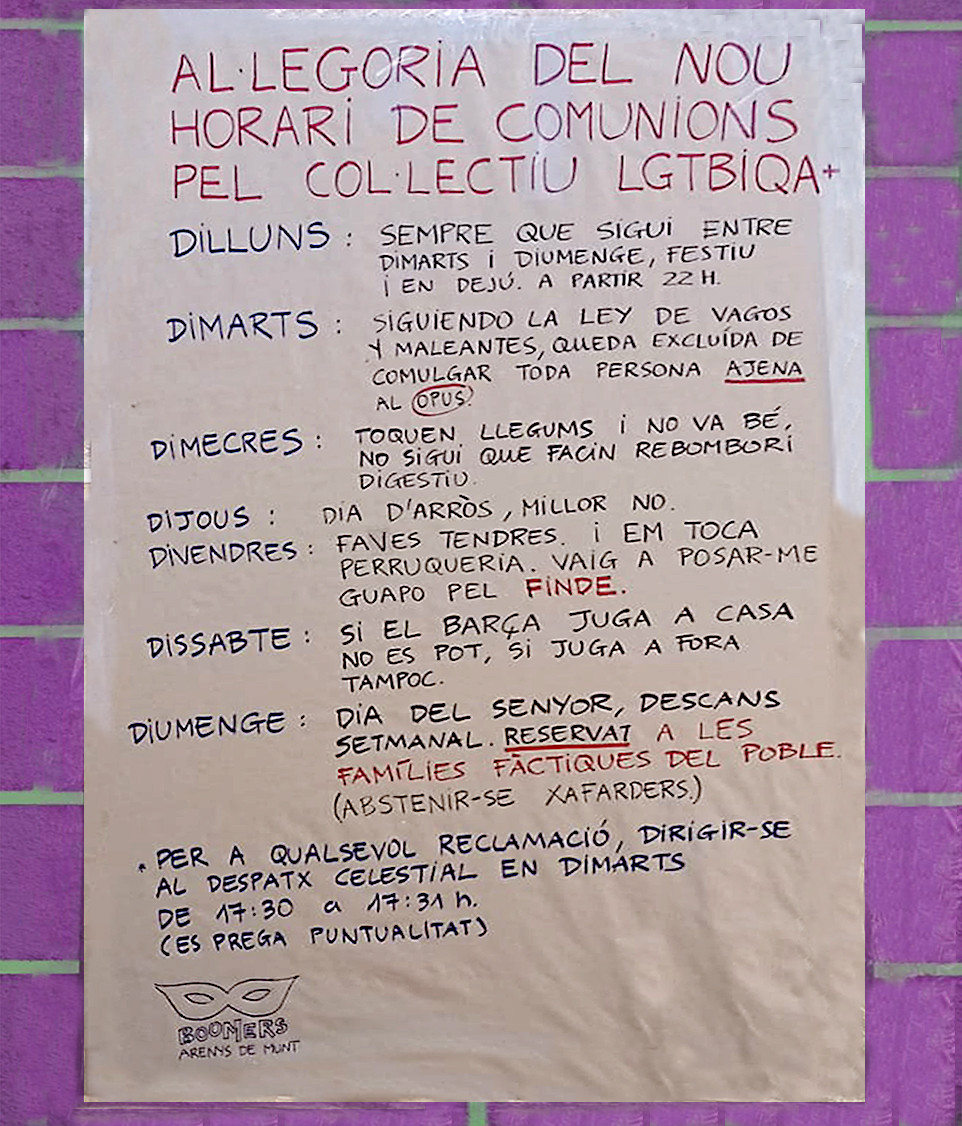 AL·LEGORIA DEL NOU
HORARI DE COMUNIONS
PEL COL·LECTIU LGTBIQA+
DILLUNS : SEMPRE QUE SIGUI ENTRE
DIMARTS I DIUMENGE, FESTIU
I EN DEJÚ. A PARTIR 22 H.
DIMARTS : SIGUIENDO LA LEY DE VAGOS
Y MALEANTES, QUEDA EXCLUÍDA DE
COMULGAR TODA PERSONA AJENA
AL OPUS.
DIMECRES : TOQUEN LLEGUMS I NO VA BÉ,
NO SIGUI QUE FACIN REBOMBORI
DIGESTIU.
DIJOUS : DIA D'ARRÒS, MILLOR NO.
DIVENDRES : FAVES TENDRES. I EM TOCA
PERRUQUERIA. VAIG A POSAR-ME
GUAPO PEL FINDE.
DISSABTE : SI EL BARÇA JUGA A CASA
NO ES POT, SI JUGA A FORA
TAMPOC.
DIUMENGE : DIA DEL SENYOR, DESCANS
SETMANAL. RESERVAT A LES
FAMÍLIES FÀCTIQUES DEL POBLE.
(ABSTENIR-SE XAFARDERS.)
. PER A QUALSEVOL RECLAMACIÓ, DIRIGIR-SE
AL DESPATX CELESTIAL EN DIMARTS
DE 17:30 a 17:31 h.
(ES PREGA PUNTUALITAT)
BOOMERS
ARENYS DE MUNT